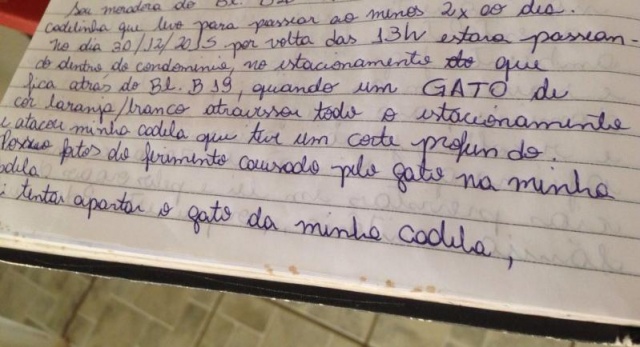 Sou moradora do Bl.
cadelinha que levo para passear ao menos 2x ao dia.
no dia 30/12/2015 por volta das 13h estara passean-
do dentro do condominio, no estacionamento do que
fica atrás do Bl. B 19, quando um GATO de
cor laranja/branco atravessou todo o estacionamento
e atacou minha cadela que teve um corte profundo.
Possuo fotos do ferimento causado pelo gato na minha
cadela
tentar apartar o gato da minha cadela,